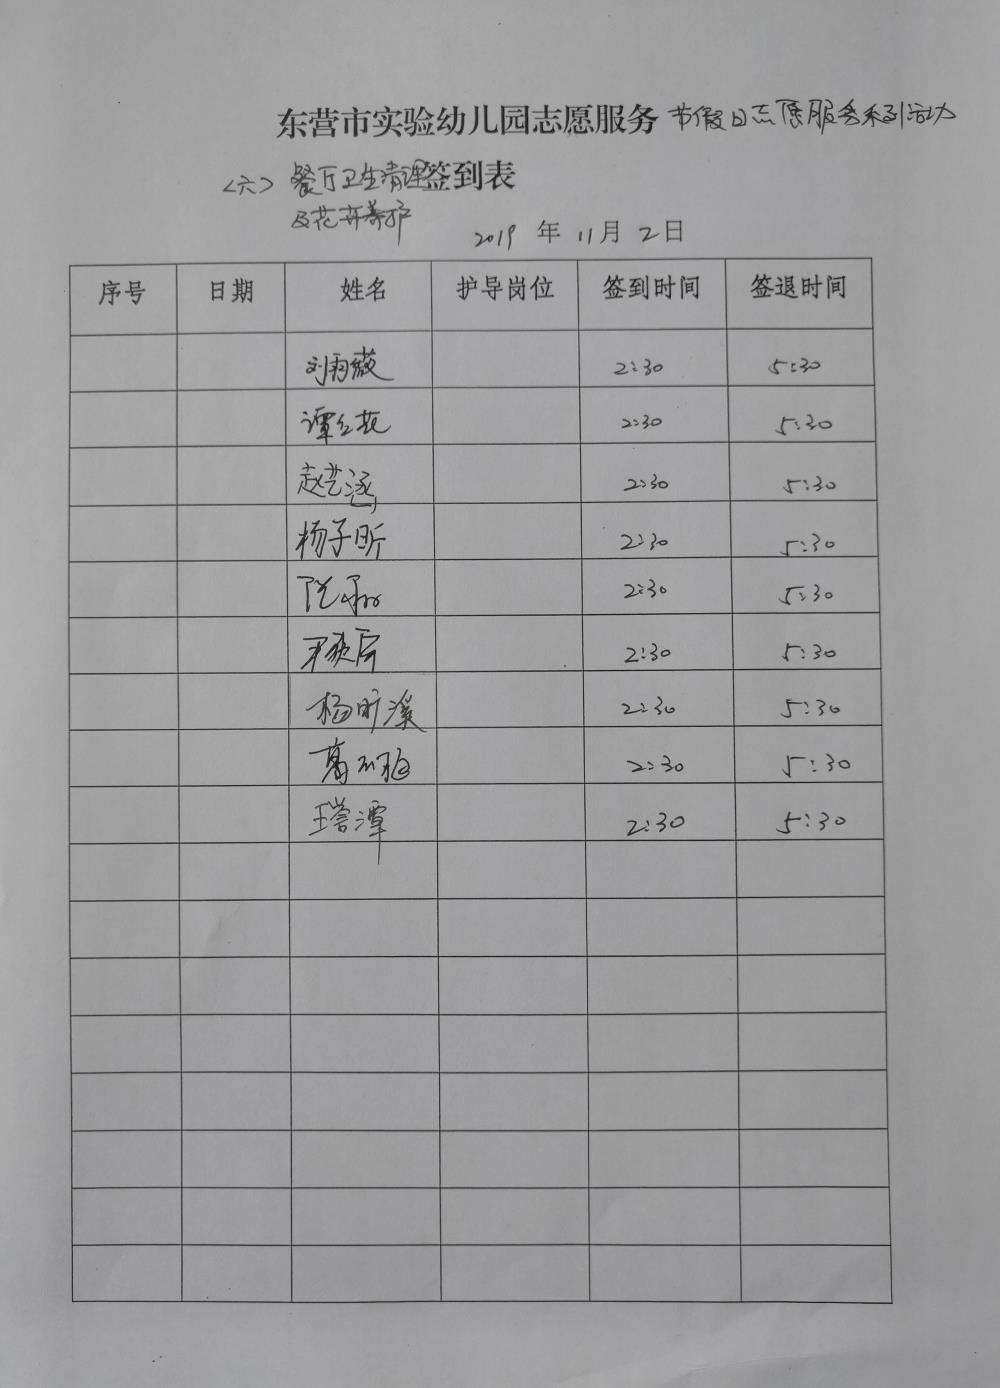 东营市实验幼儿园志愿服务 节假日志愿服务系列活动
（六）餐厅卫生清理签到表
及花卉养护
2019 年 11月 2日
序号 日期 姓名 护导岗位 签到时间 签退时间
刘雨薇 2:30 5:30
谭红花 2:30 5:30
赵艺涵 2:30 5:30
杨子昕 2:30 5:30
2:30 5:30
2:30 5:30
杨昕溪 2:30 5:30
2:30 5:30
王誉潭 2:30 5:30